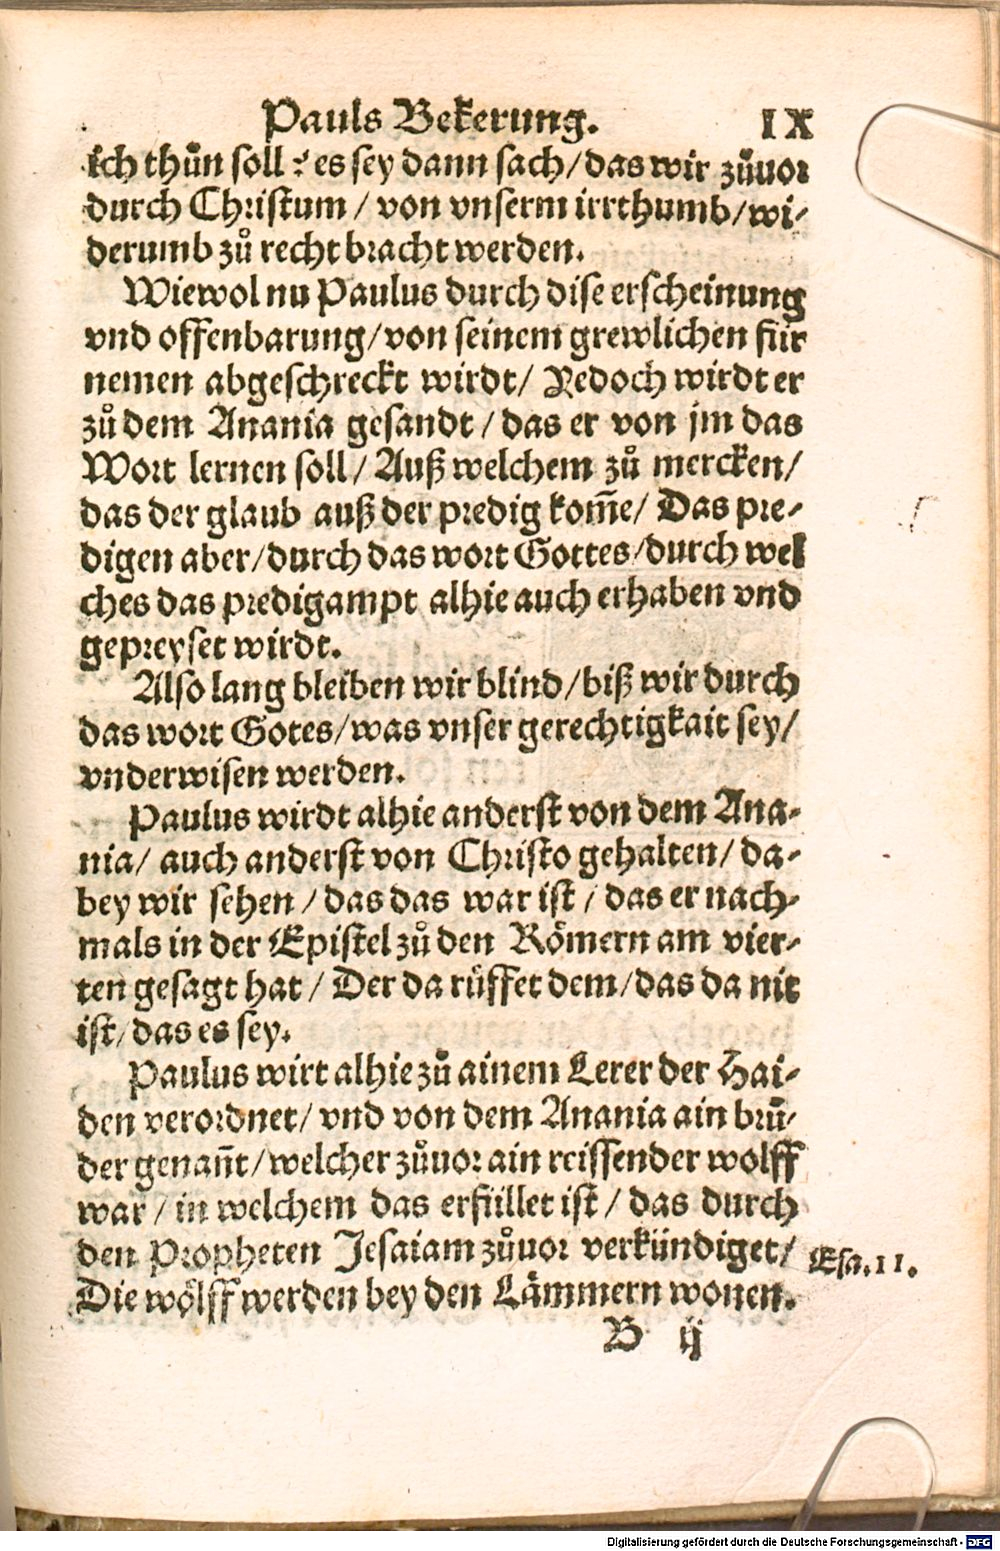 Pauls Bekerung. IX
ich thůn soll? es sey dann sach/das wir zůuor
durch Christum / von vnserm irrthumb/wi-
derumb zů recht bracht werden.
Wiewol nu Paulus durch dise erscheinung
vnd offenbarung/von seinem grewlichen für
nemen abgeschreckt wirdt/ Yedoch wirdt er
zů dem Anania gesandt / das er von jm das
Wort lernen soll/ Auß welchem zů mercken/
das der glaub auß der predig kom̃e/ Das pre-
digen aber/durch das wort Gottes/durch wel
ches das predigampt alhie auch erhaben vnd
gepreyset wirdt.
Also lang bleiben wir blind/biß wir durch
das wort Gotes/was vnser gerechtigkait sey/
vnderwisen werden.
Paulus wirdt alhie anderst von dem Ana-
nia/ auch anderst von Christo gehalten/ da-
bey wir sehen / das das war ist / das er nach-
mals in der Epistel zů den Römern am vier-
ten gesagt hat / Der da rüffet dem/das da nit
ist/das es sey.
Paulus wirt alhie zů ainem Lerer der Hai-
den verordnet/ vnd von dem Anania ain brů-
der genañt/welcher zůuor ain reissender wolff
war / in welchem das erfüllet ist / das durch
den Propheten Jesaiam zůuor verkündiget/
Esa.11.
Die wölff werden bey den Lämmern wonen.
B ij
Digitalisierung gefördert durch die Deutsche Forschungsgemeinschaft - DFG